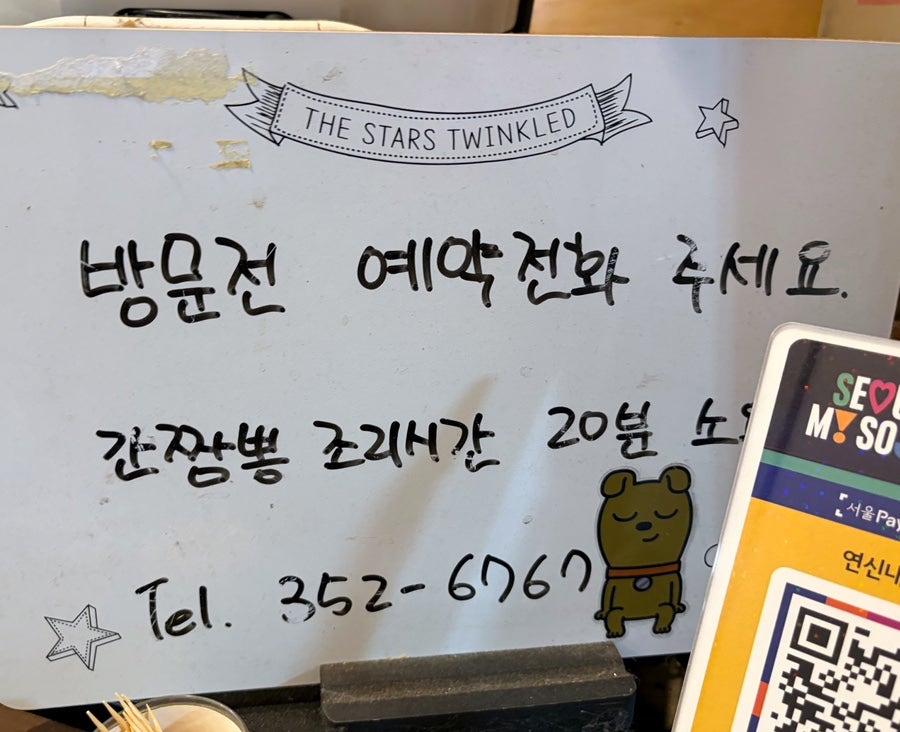 THE STARS TWINKLED
방문전 예약전화 주세요.
간짬뽕 조리시간 20분
Tel. 352-6767
서울Pay
연신내